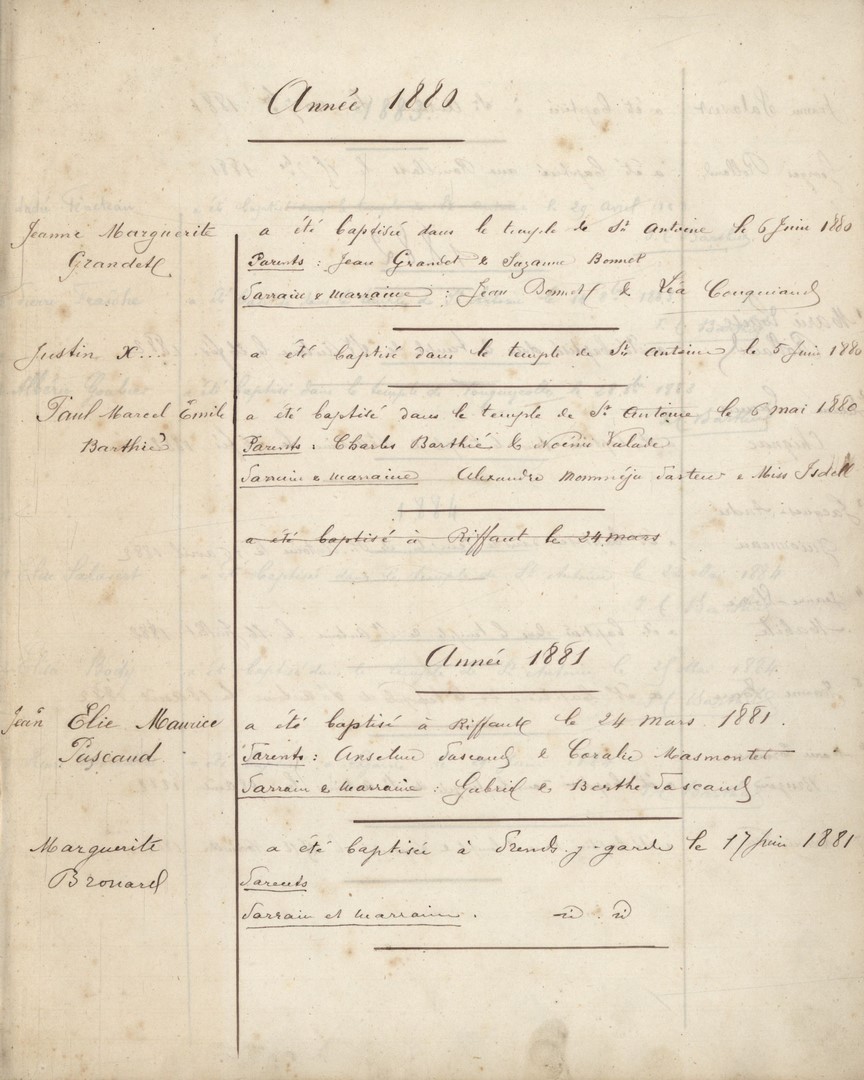 Année 1880
Jeanne Marguerite a été baptisée dans le temple de St Antoine le 6 Juin 1880
Grandet Parents : Jean Grandet & Suzanne Bonnet
Parrain & Marraine : Jean Bonnet & Léa Couquiaud
Justin X.... a été baptisé dans le temple de St Antoine le 5 Juin 1880
Paul Marcel Emile a été baptisé dans le temple de St Antoine le 6 mai 1880
Barthié Parents : Charles Barthié & Noémie Valade
Parrain & Marraine Alexandre Mommeja Pasteur & Miss Isdell
a été baptisé à Riffaut le 24 mars
Année 1881
Jean Elie Maurice a été baptisé à Riffaut le 24 mars 1881.
Pascaud Parents : Anselme Pascaud & Coralie Masmontet
Parrain & Marraine : Gabriel & Berthe Pascaud
Marguerite a été baptisée à Prends-y-garde le 17 Juin 1881
Brouard Parents
Parrain et Marraine.